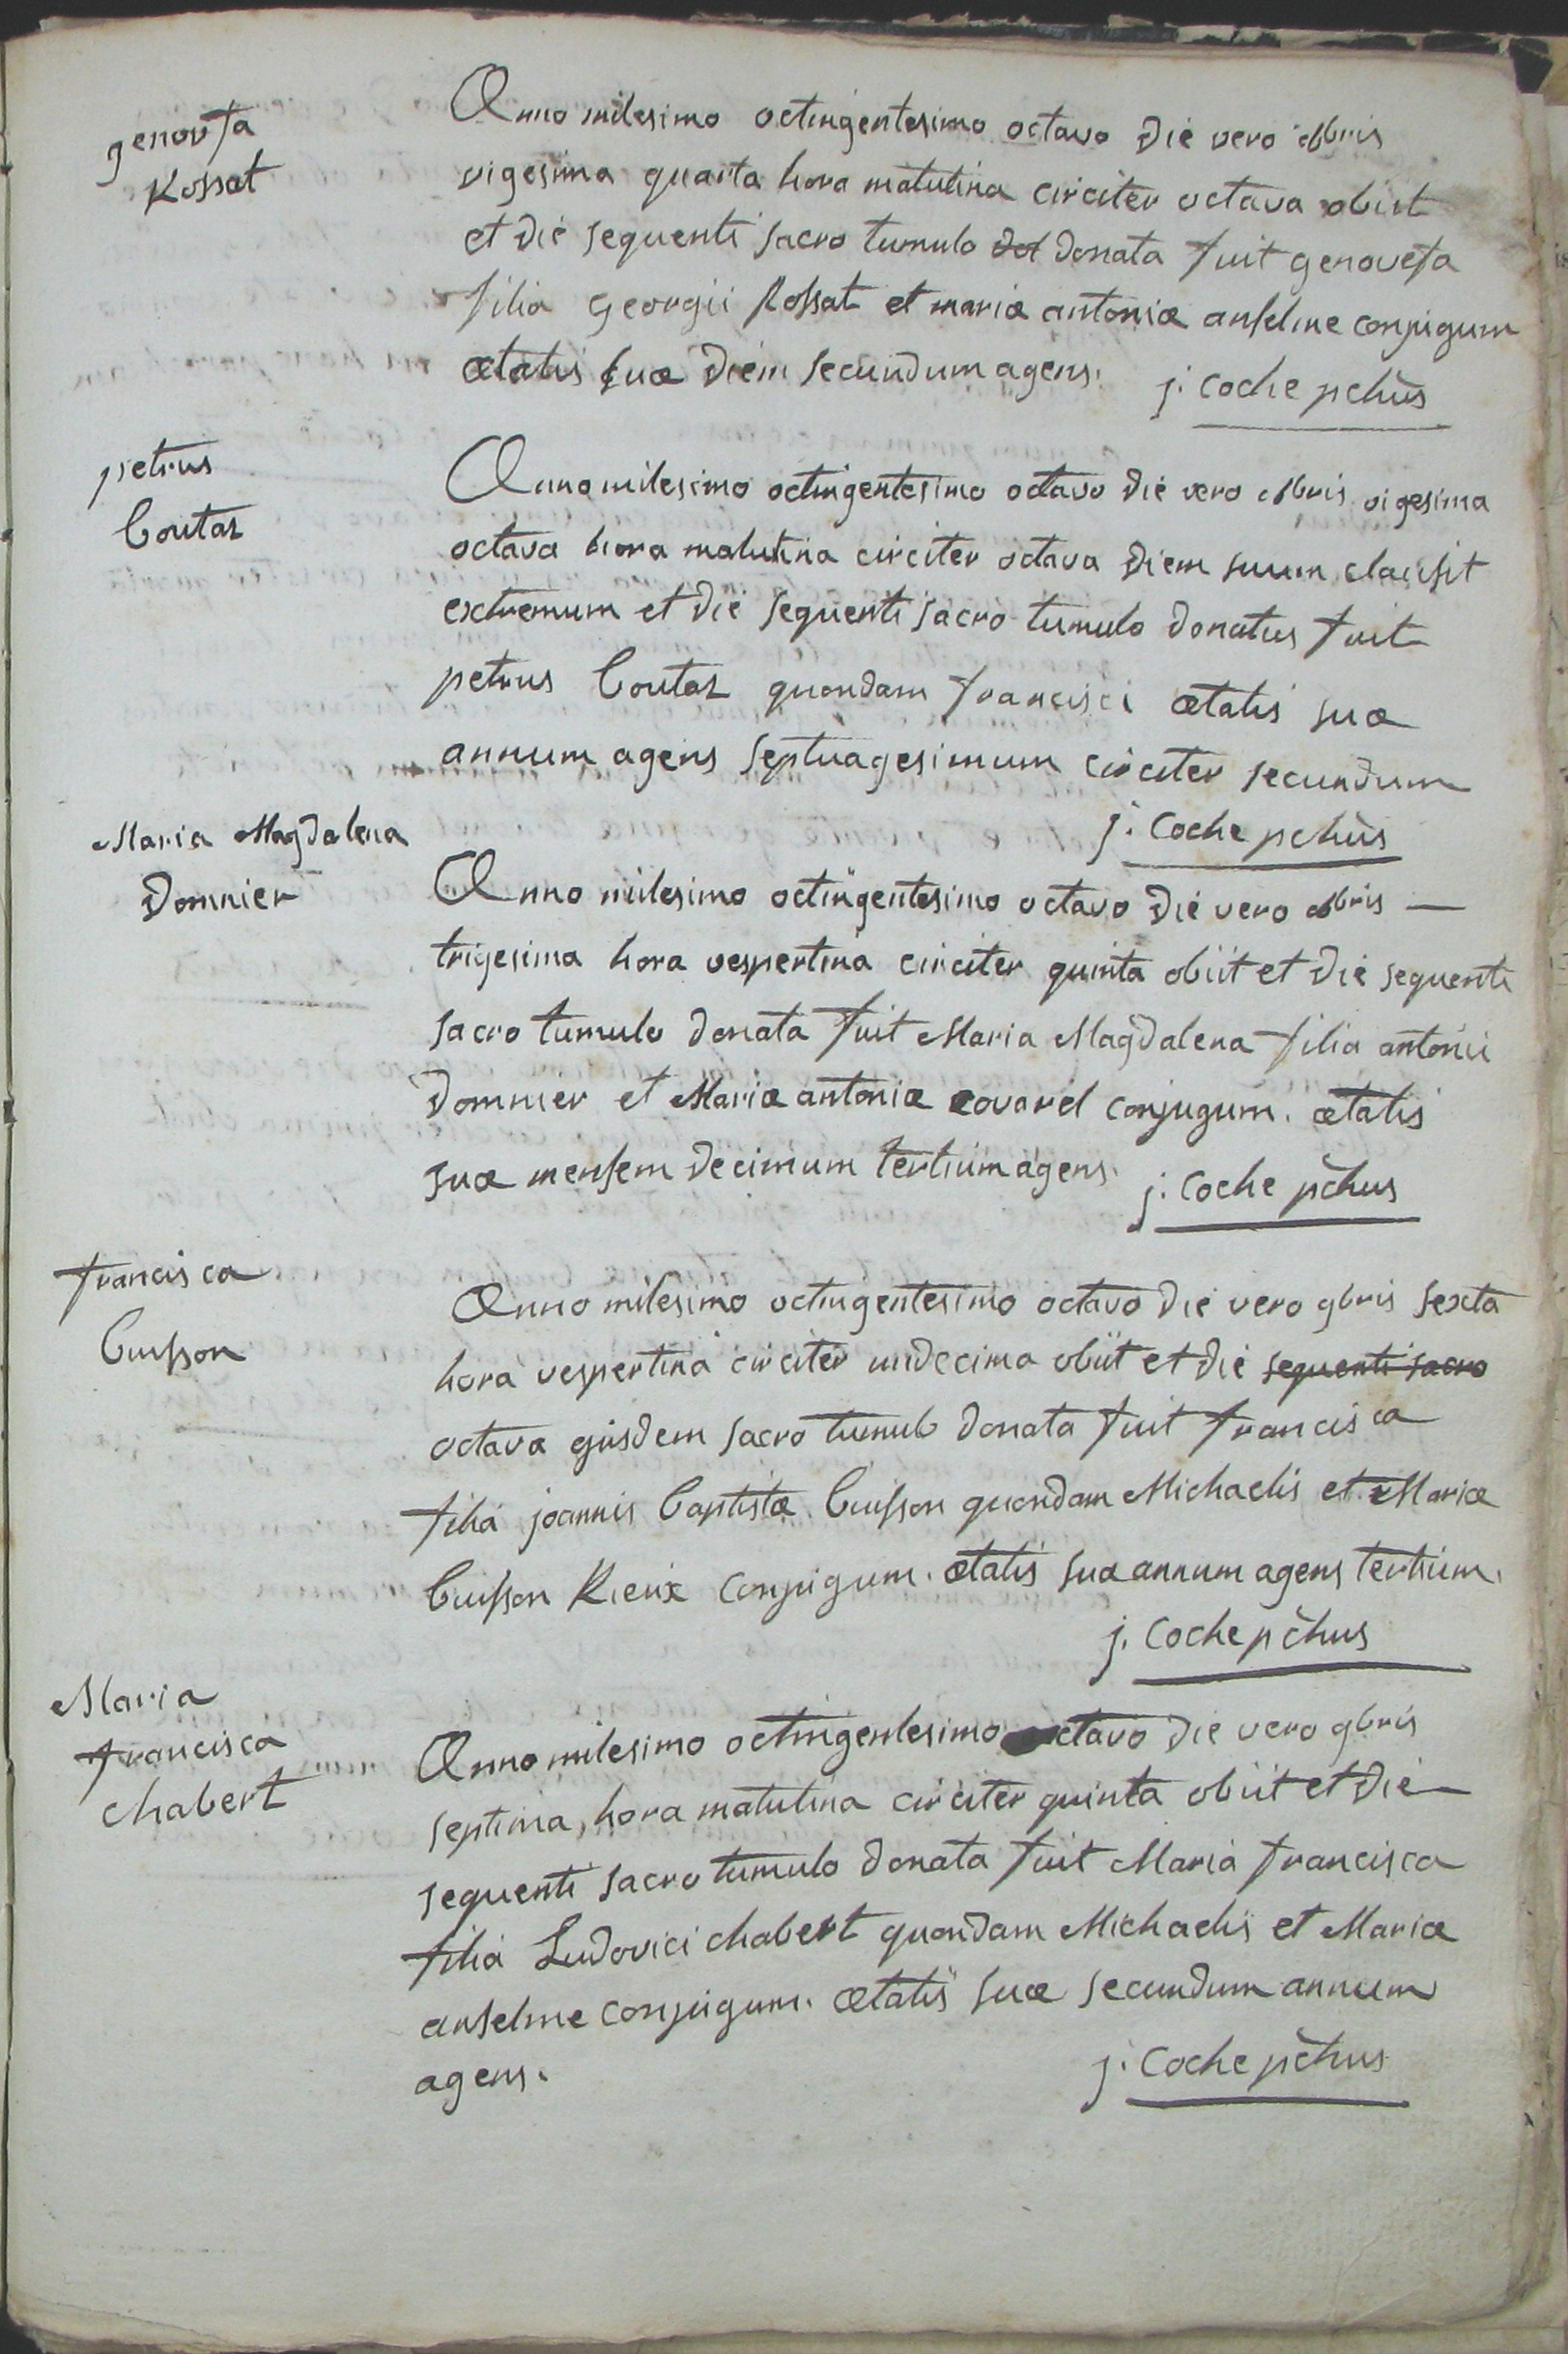 genovefa
Rossat
Anno milesimo octingentesimo octavo die vero 8bris
vigesima quarta hora matutina circiter octava obiit
et die sequenti sacro tumulo dol donata fuit genovefa
filia georgii Rossat et mariæ antoniæ anselme conjugum
ætatis suæ diem secundum agens.
j. Coche pchus
petrus
Boutaz
Anno milesimo octingentesimo octavo die vero 8bris vigesima
octava hora matutina circiter octava diem suum clausit
extremum et die sequenti sacro tumulo donatus fuit
petrus Boutaz quondam francisci ætatis suæ
annum agens septuagesimum circiter secundum
j. Coche pchus
Maria Magdalena
Domnier
Anno milesimo octingentesimo octavo die vero 8bris —
trigesima hora vespertina circiter quinta obiit et die sequenti
sacro tumulo donata fuit Maria Magdalena filia antonii
Domnier et Mariæ antoniæ covarel conjugum. ætatis
suæ mensem decimum tertium agens.
j. Coche pchus
francisca
Buisson
Anno milesimo octingentesimo octavo die vero 9bris sexta
hora vespertina circiter undecima obiit et die sequenti sacro
octava ejusdem sacro tumulo donata fuit francisca
filia joannis Baptistæ Buisson quondam Michaelis et Mariæ
Buisson Rieux conjugum. ætatis suæ annum agens tertium.
j. Coche pchus
Maria
francisca
chabert
Anno milesimo octingentesimo octavo die vero 9bris
septima, hora matutina circiter quinta obiit et die
sequenti sacro tumulo donata fuit Maria francisca
filia Ludovici chabert quondam Michaelis et Mariæ
anselme conjugum. ætatis suæ secundum annum
agens.
j. Coche pchus